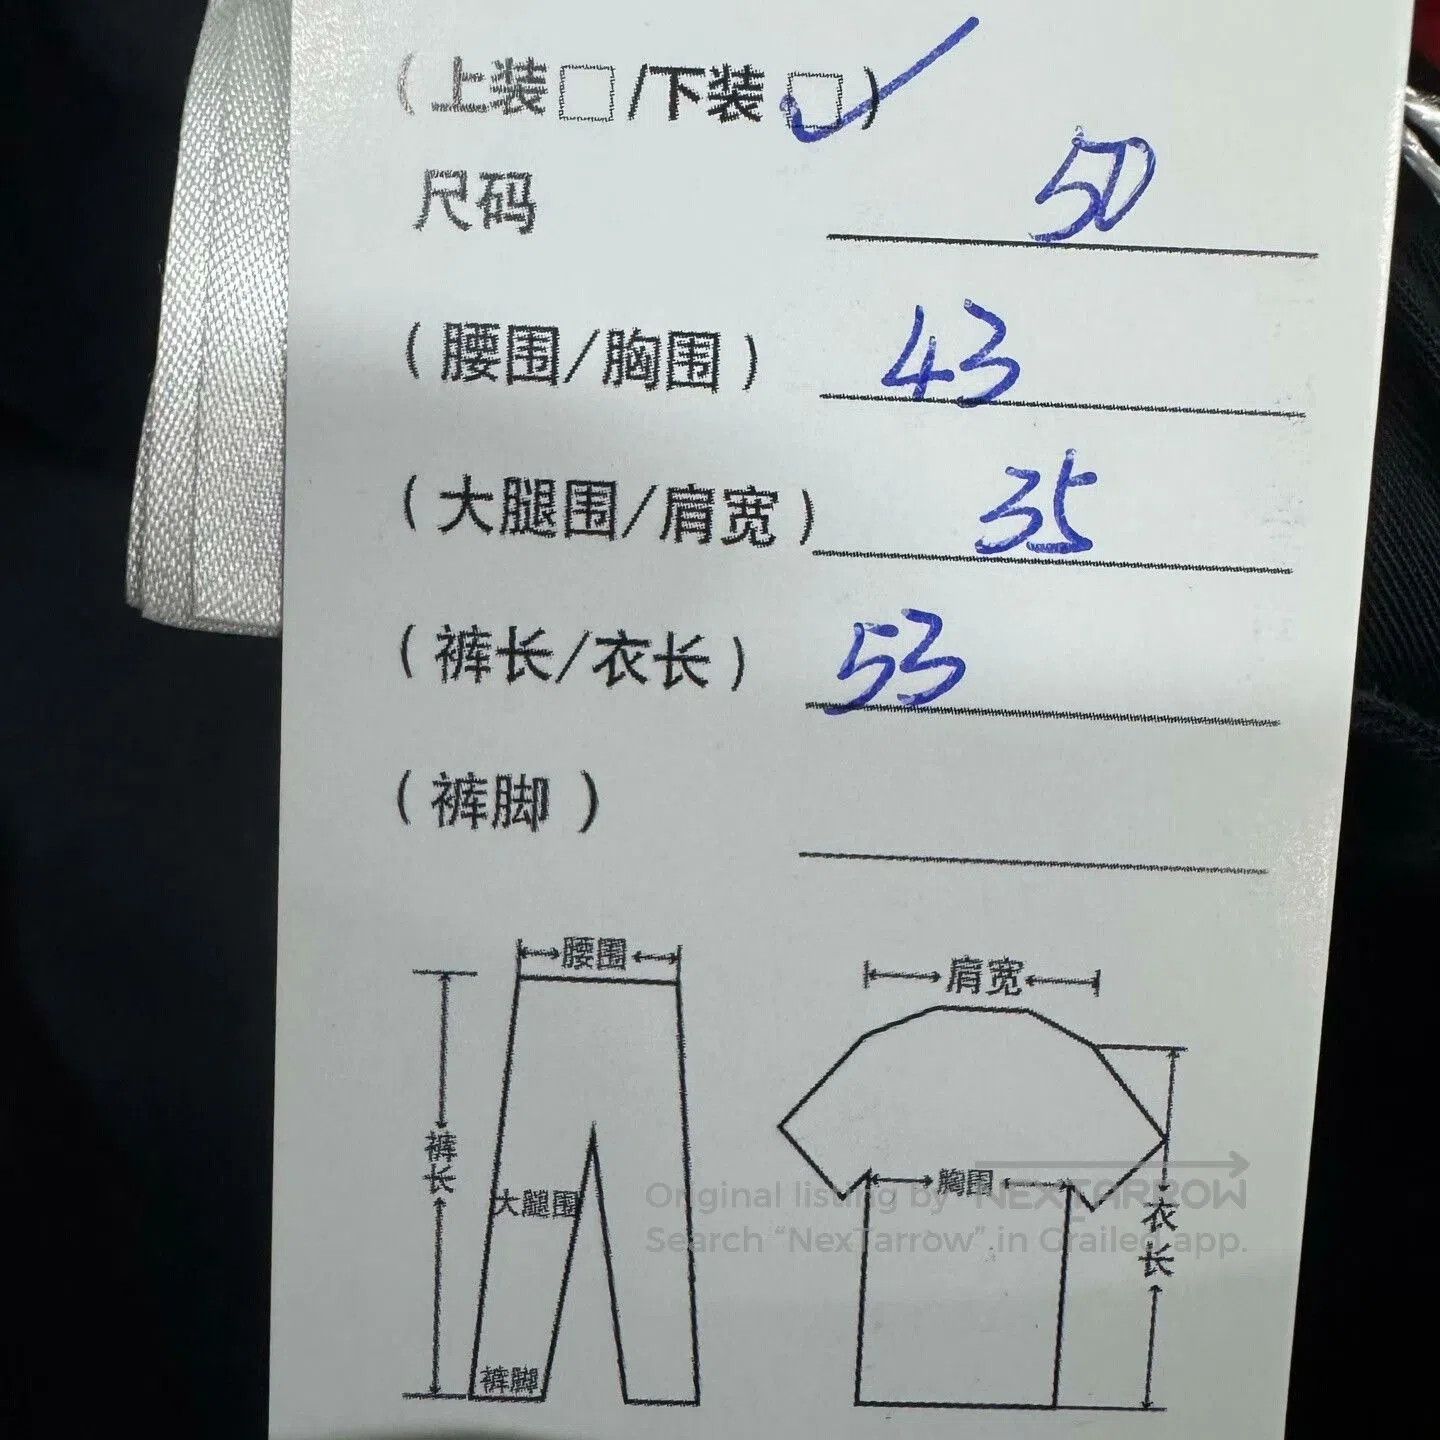 (上装□/下装☑)
尺码 50
(腰围/胸围) 43
(大腿围/肩宽) 35
(裤长/衣长) 53
(裤脚)
腰围
肩宽
裤长
大腿围
胸围
衣长
裤脚
Original listing by NEXTARROW
Search “NexTarrow” in Grailed app.